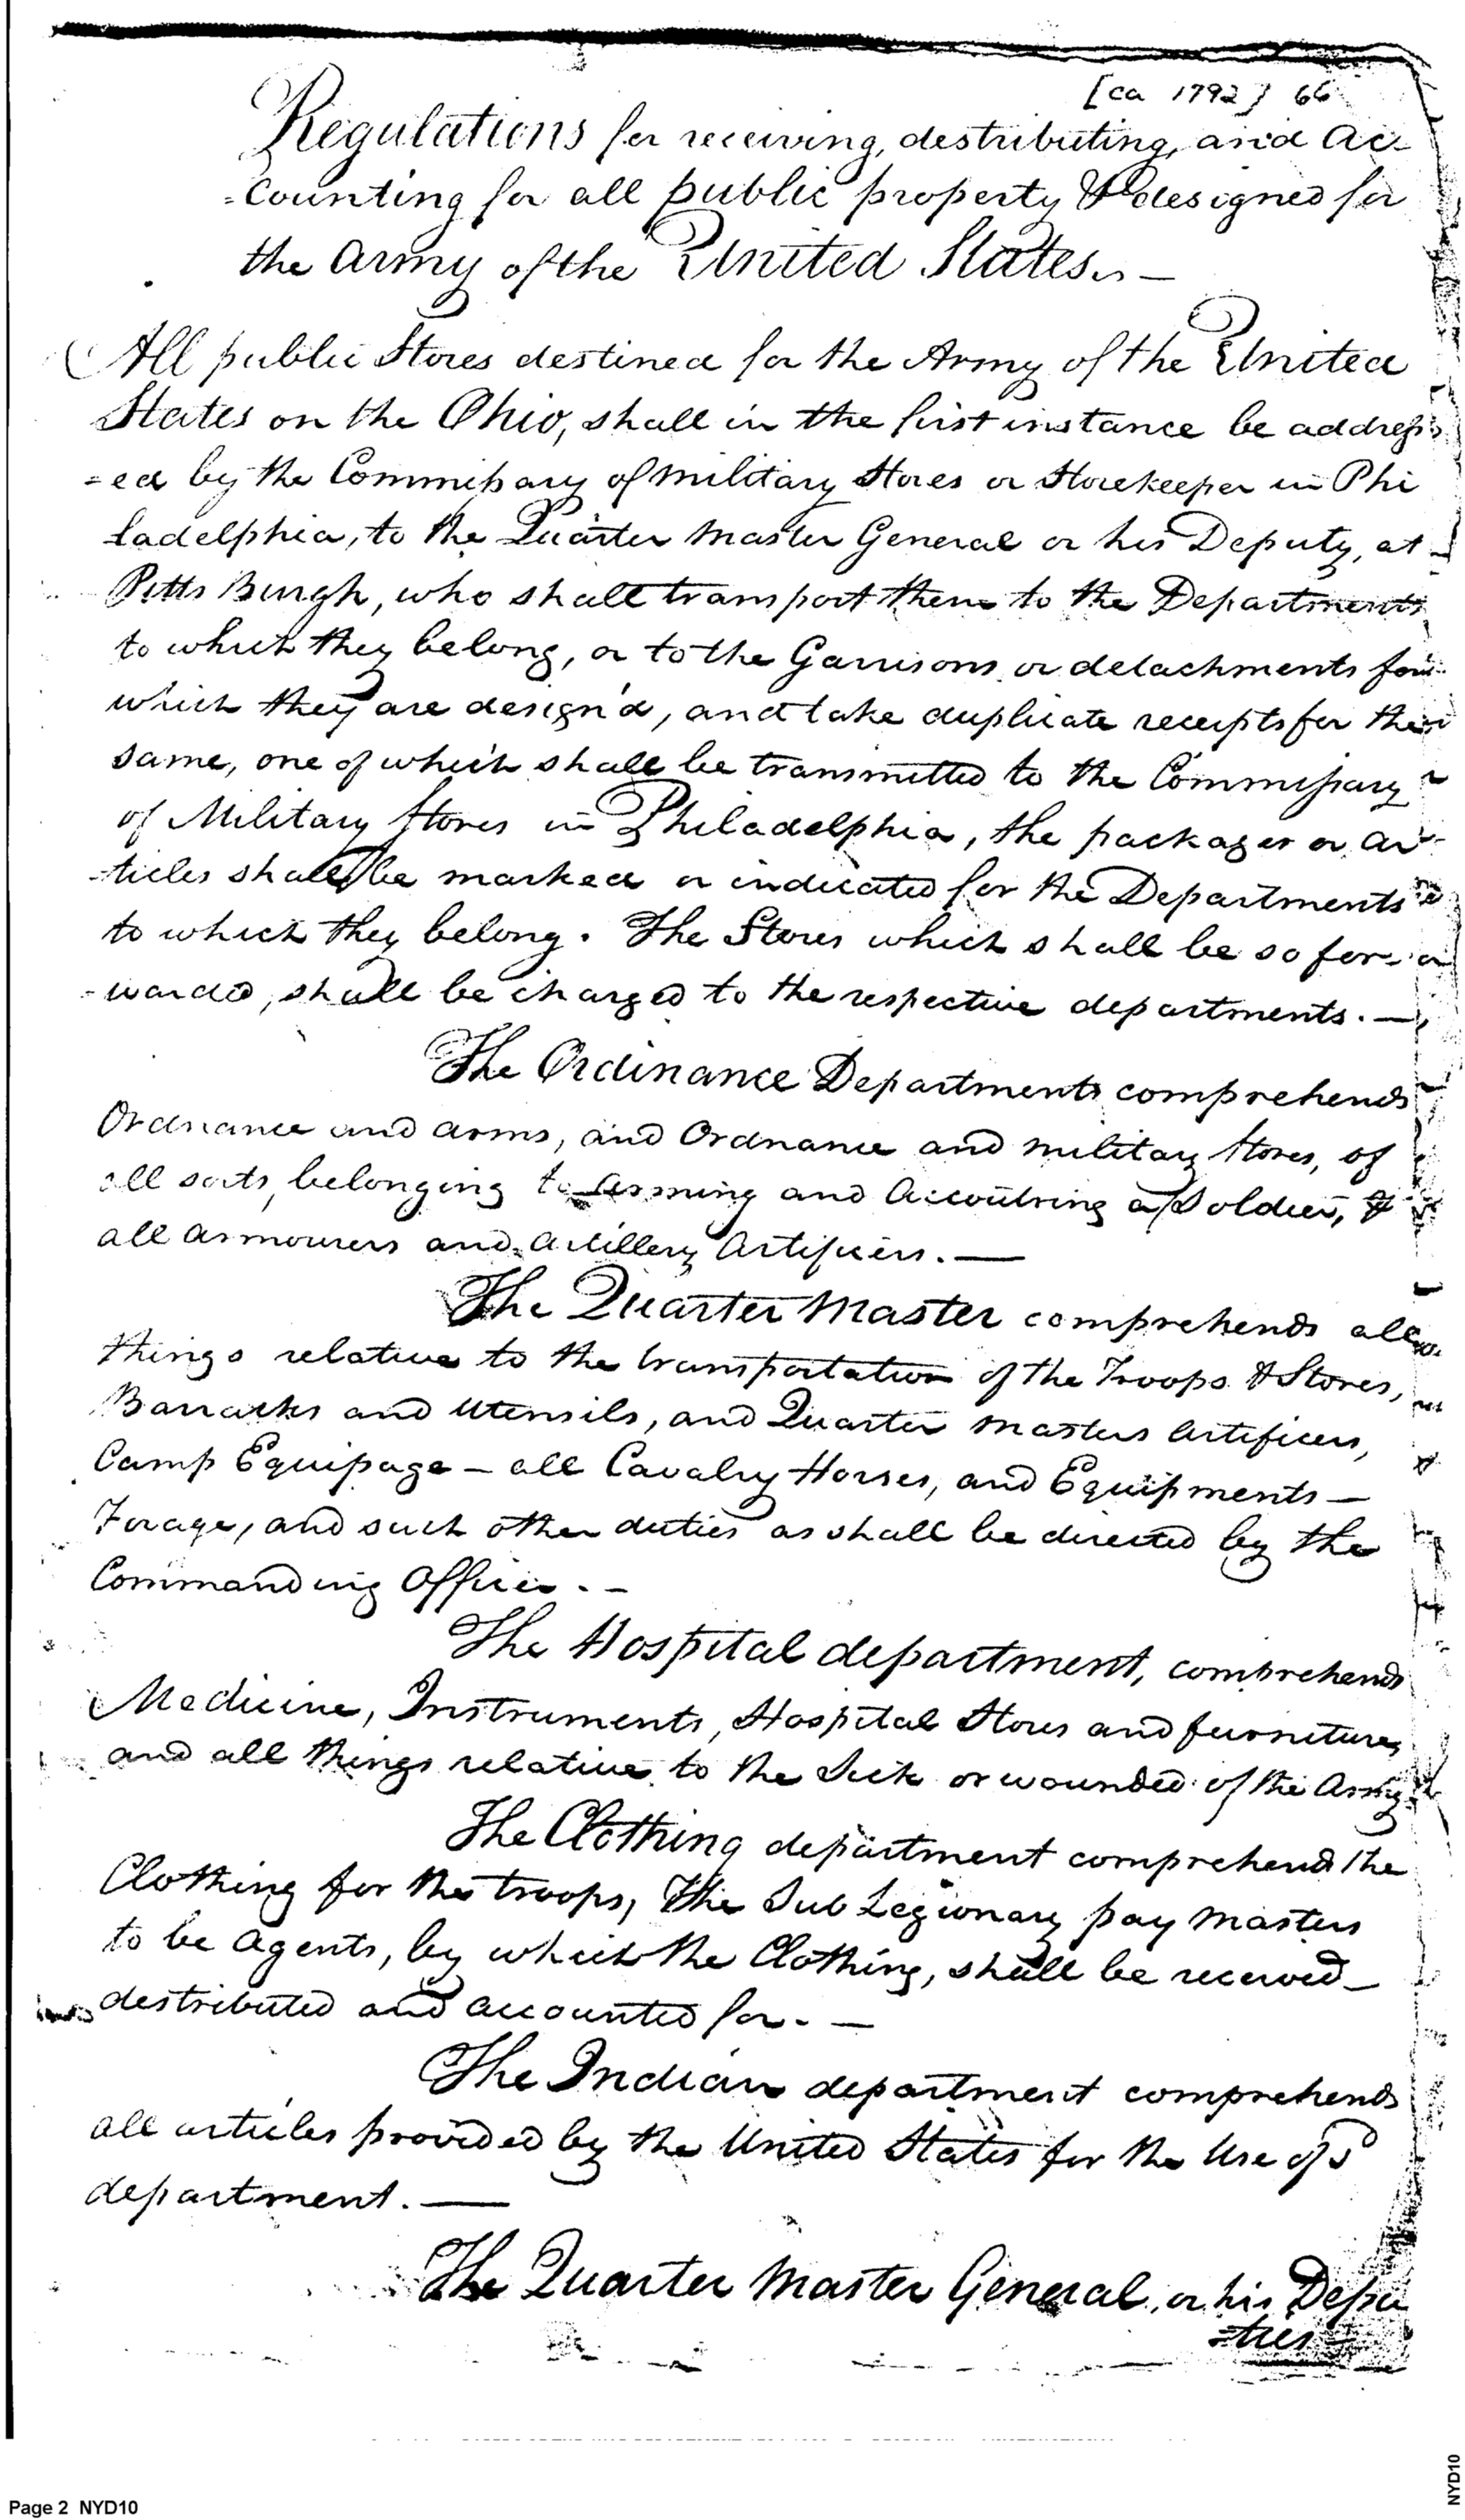 [ca 1792] 66
Regulations for receiving, destributing, and Ac-
=counting for all public property &c designed for
the Army of the United States. —
All public Stores destined for the Army of the United
States on the Ohio, shall in the first instance be address
=ed by the Commissary of military Stores or Storekeeper in Phi
ladelphia, to the Quarter Master General or his Deputy, at
Pitts Burgh, who shall transport them to the Departments
to which they belong, or to the Garrisons or detachments for
which they are design'd, and take duplicate receipts for the
same, one of which shall be transmitted to the Commissary
of Military Stores in Philadelphia, the packages or ar-
-ticles shall be marked or indicated for the Departments
to which they belong. The Stores which shall be so for-
-warded, shall be charged to the respective departments. —
The Ordinance Departments comprehends
Ordnance and arms, and Ordnance and military Stores, of
all sorts, belonging to Arming and Accoutring a Soldier, &
all Armourers and Artillery Artificers. —
The Quarter Master comprehends all
things relative to the transportation of the Troops & Stores,
Barracks and Utensils, and Quarter Masters Artificers,
Camp Equipage — all Cavalry Horses, and Equipments —
Forage, and such other duties as shall be directed by the
Commanding Officer. —
The Hospital department, comprehends
Medicine, Instruments, Hospital Stores and furniture,
and all things relative to the Sick or wounded of the Army.
The Clothing department comprehends the
Clothing for the troops, The Sub Legionary pay Masters
to be Agents, by which the Clothing, shall be received —
destributed and accounted for. —
The Indian department comprehends
all articles provided by the United States for the Use of sd
department. —
The Quarter Master General, or his Depu
=ties
Page 2 NYD10
NYD10